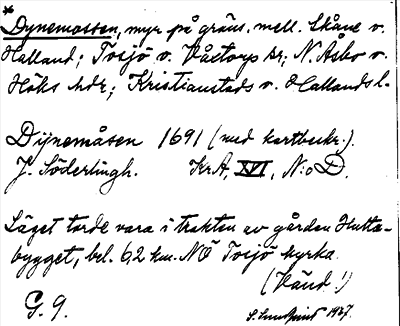 *
Dynemossen, myr på gräns. mell. Skåne o.
Halland; Tosjö o. Våxtorps sr; N. Åsbo o.
Höks hdr; Kristianstads o. Hallands l.
Dÿnemåsen 1691 (med kartbeskr.).
J. Söderlingh. KrA, XVI, N:o D.
Läget torde vara i trakten av gården Hutta-
bygget, bel. 6,2 km. NÖ Tosjö kyrka.
(Vänd!)
G. 9.
S. Lundquist 1927.